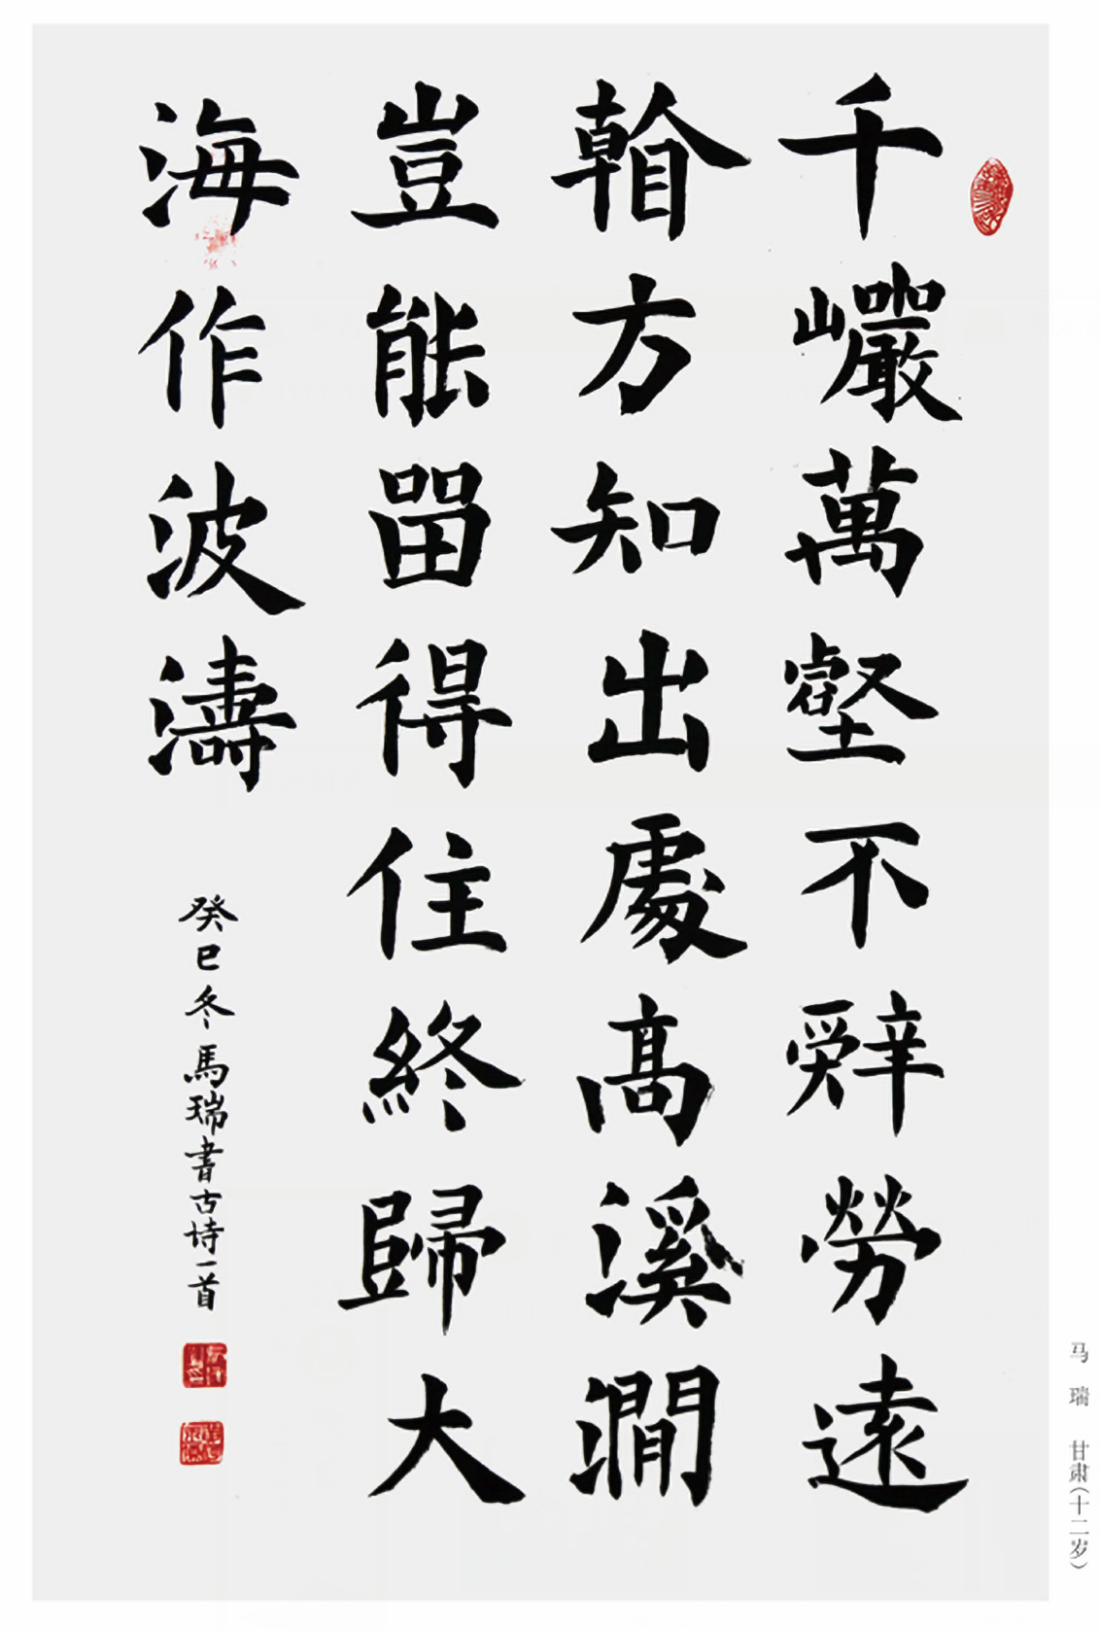 千巖萬壑不辤勞遠
㪇方知出處高溪澗
豈能畱得住終歸大
海作波濤
癸巳冬馬瑞書古诗一首
马瑞 甘肃(十二岁)